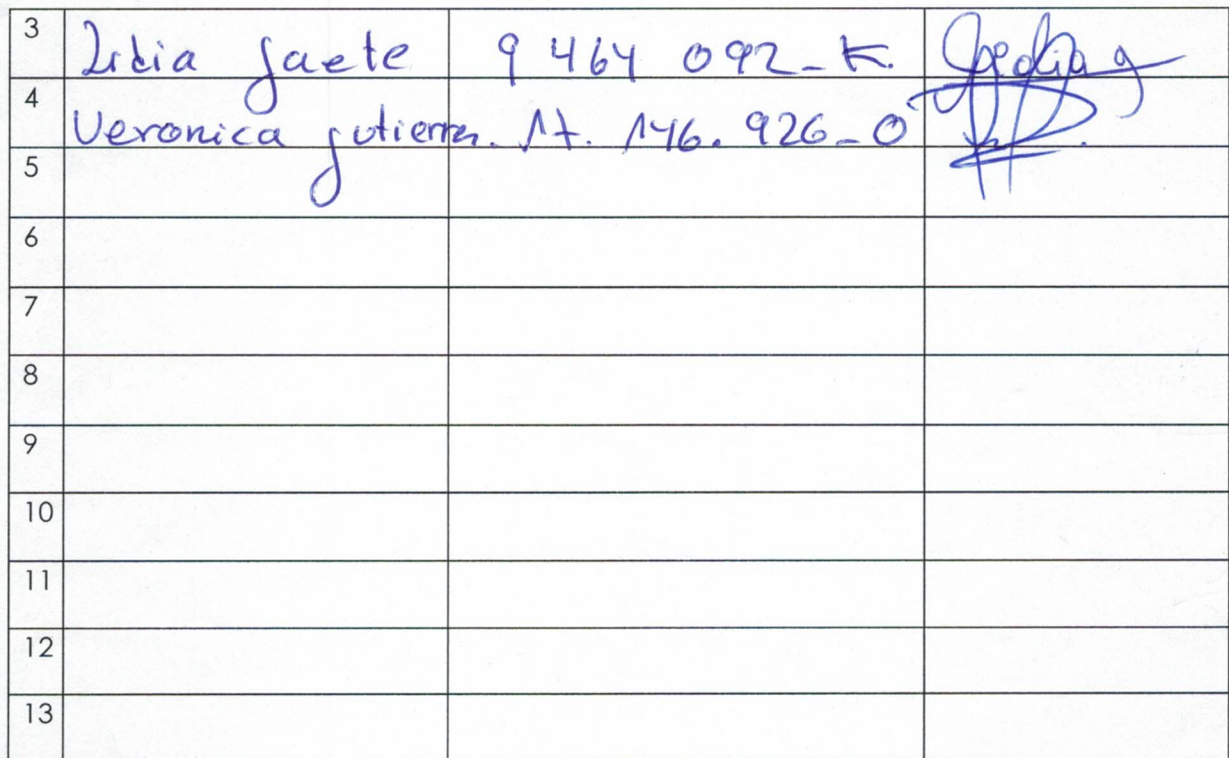 3 Lidia gaete 9 464 092-K.
4 Veronica gutierrez. 17. 146. 926-0
5
6
7
8
9
10
11
12
13